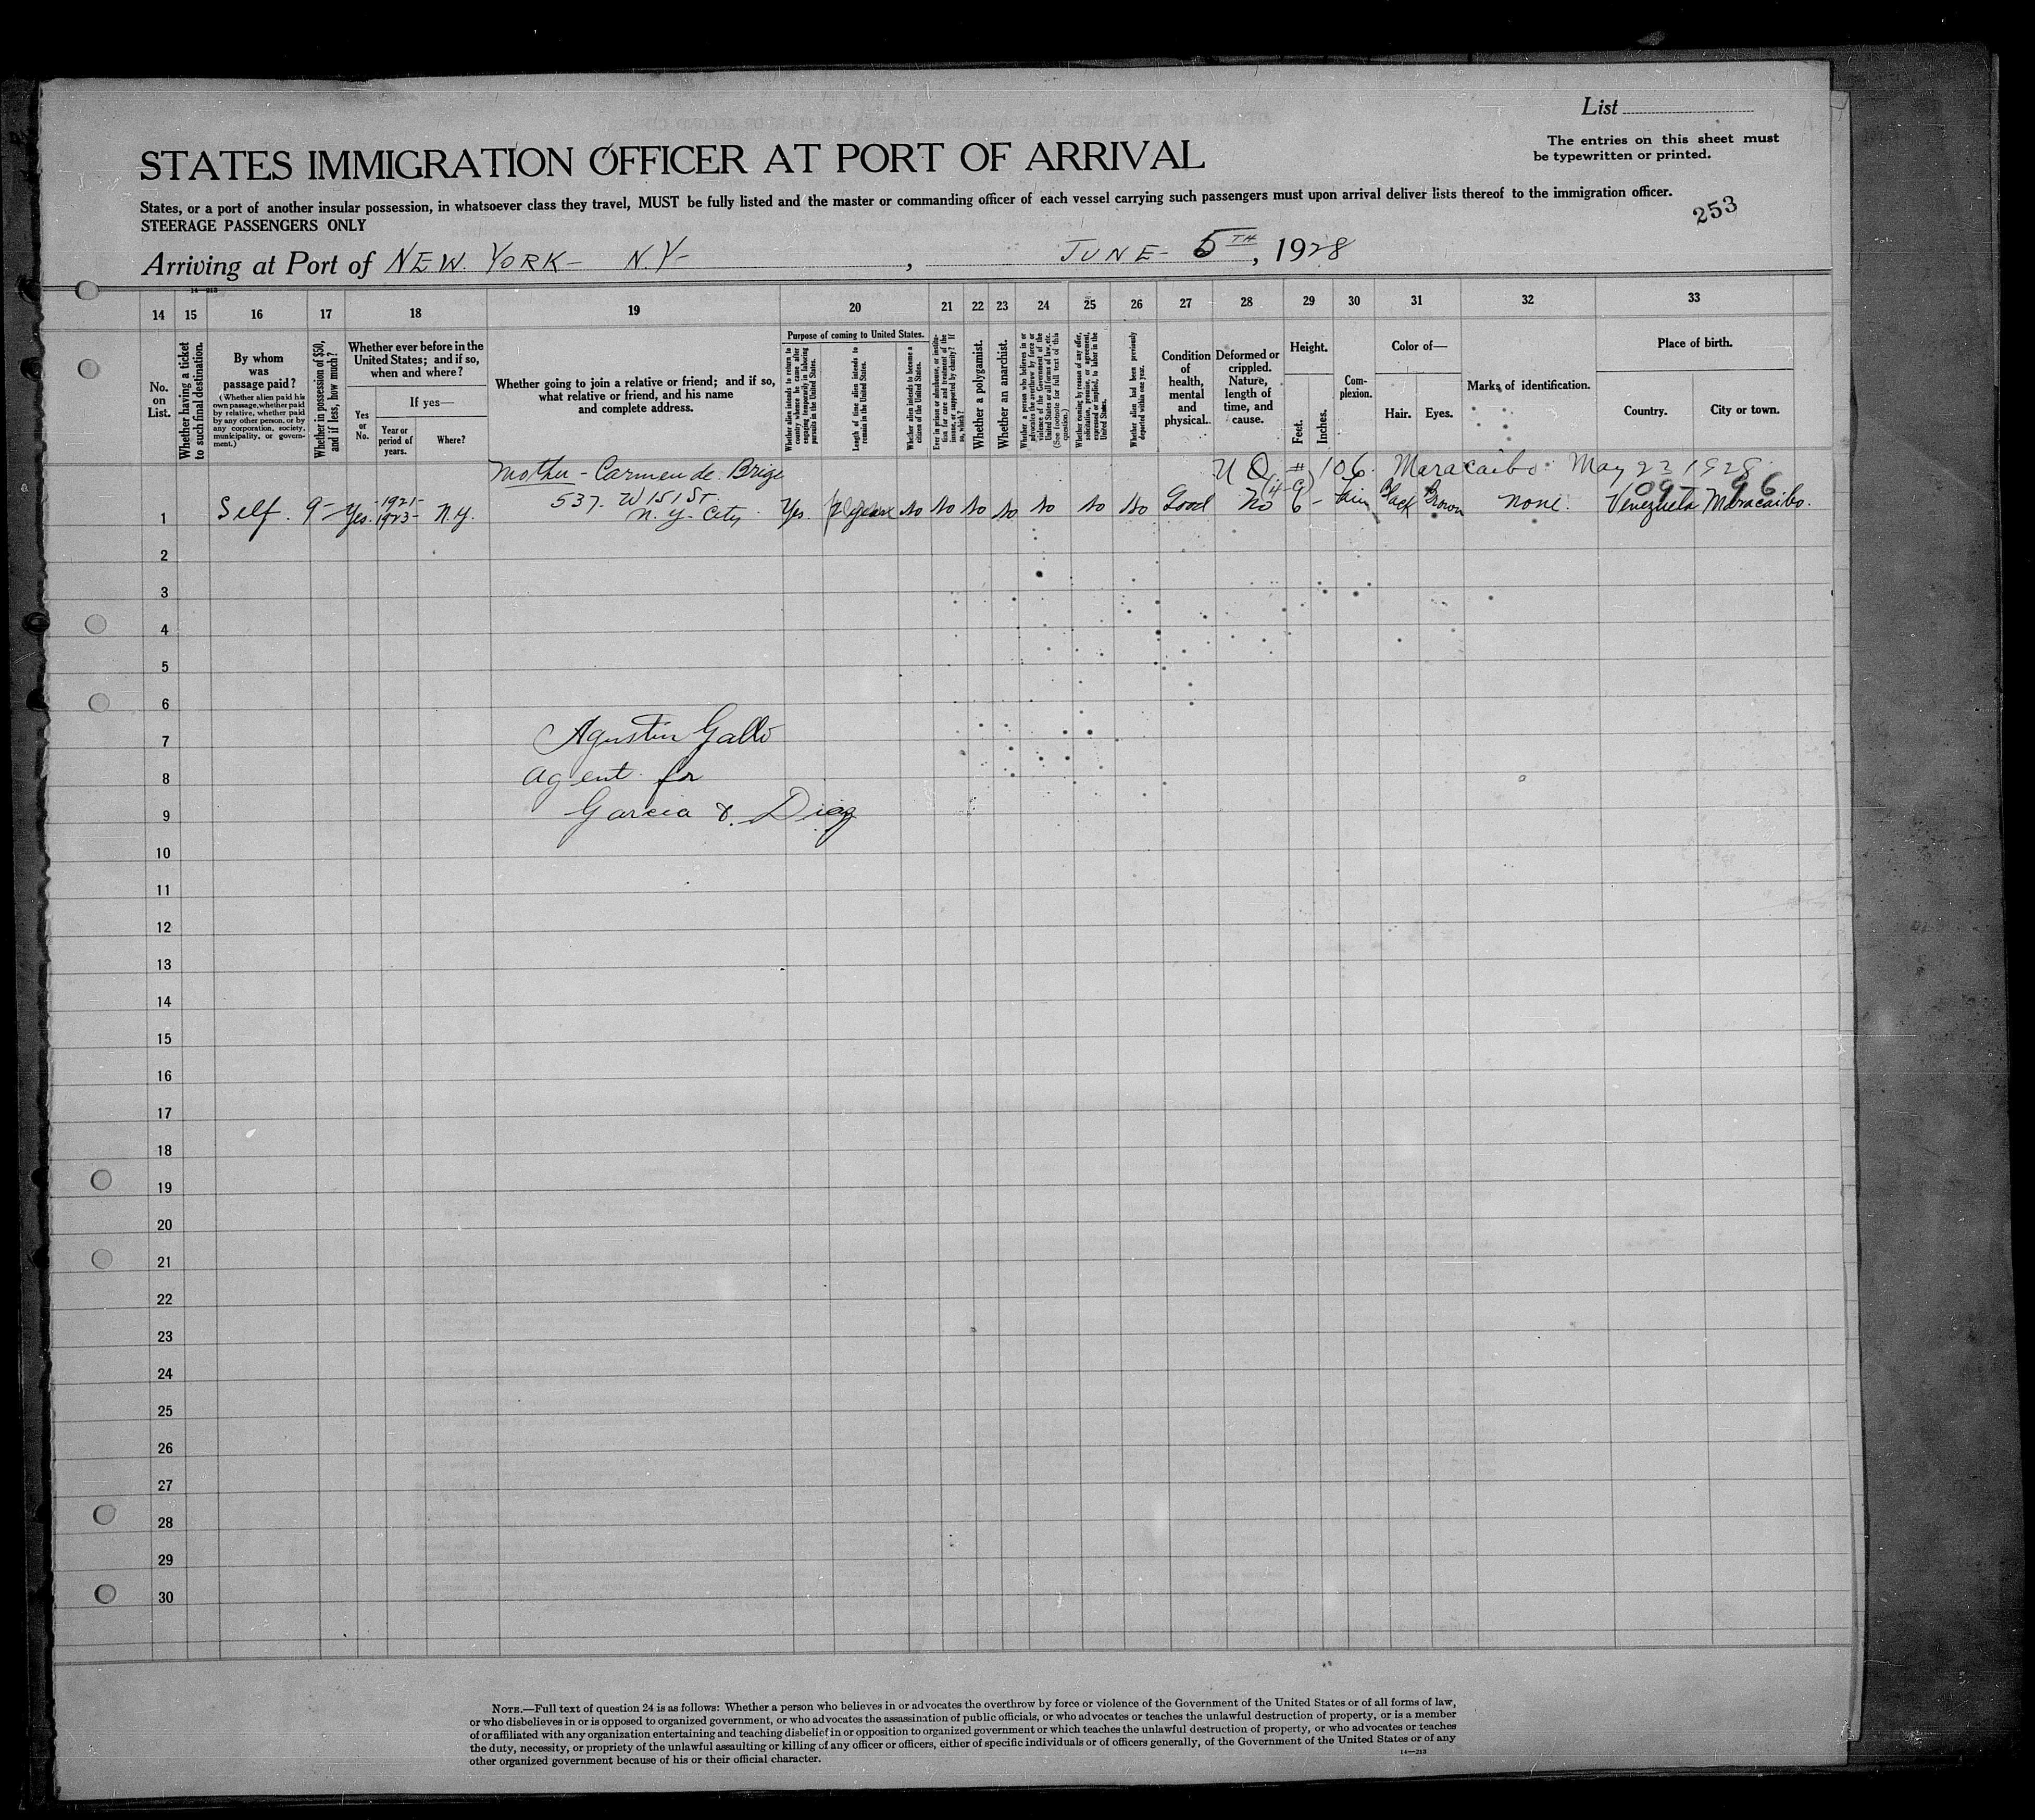 List
The entries on this sheet must
be typewritten or printed.
STATES IMMIGRATION OFFICER AT PORT OF ARRIVAL
States, or a port of another insular possession, in whatsoever class they travel, MUST be fully listed and the master or commanding officer of each vessel carrying such passengers must upon arrival deliver lists thereof to the immigration officer.
STEERAGE PASSENGERS ONLY
253
Arriving at Port of NEW YORK – N.Y– , JUNE – 5TH, 1928
14—213
14 15 16 17 18 19 20 21 22 23 24 25 26 27 28 29 30 31 32 33
No.
on
List.
Whether having a ticket
to such final destination.
By whom
was
passage paid?
(Whether alien paid his
own passage, whether paid
by relative, whether paid
by any other person, or by
any corporation, society,
municipality, or govern-
ment.)
Whether in possession of $50,
and if less, how much?
Whether ever before in the
United States; and if so,
when and where?
Yes
or
No.
If yes—
Year or
period of
years.
Where?
Whether going to join a relative or friend; and if so,
what relative or friend, and his name
and complete address.
Purpose of coming to United States.
Whether alien intends to return to
country whence he came after
engaging temporarily in laboring
pursuits in the United States.
Length of time alien intends to
remain in the United States.
Whether alien intends to become a
citizen of the United States.
Ever in prison or almshouse, or institu-
tion for care and treatment of the
insane, or supported by charity? If
so, which?
Whether a polygamist.
Whether an anarchist.
Whether a person who believes in or
advocates the overthrow by force or
violence of the Government of the
United States or all forms of law, etc.
(See footnote for full text of this
question.)
Whether coming by reason of any offer,
solicitation, promise, or agreement,
expressed or implied, to labor in the
United States.
Whether alien had been previously
deported within one year.
Condition
of
health,
mental
and
physical.
Deformed or
crippled.
Nature,
length of
time, and
cause.
Height.
Feet.
Inches.
Com-
plexion.
Color of—
Hair.
Eyes.
Marks of identification.
Place of birth.
Country.
City or town.
Mother – Carmen de Brige
N Q # 106. Maracaibo. May 23 1928
1 Self. 9– Yes. 1921– 1923– N.Y. 537. W 151 St. N.Y. City Yes. No No No No No No No Good No 6 – Black Brown none. Venezuela Maracaibo.
2
3
4
5
6
Agustin Gallo
7
agent for
8
Garcia & Diaz
9
10
11
12
13
14
15
16
17
18
19
20
21
22
23
24
25
26
27
28
29
30
NOTE.—Full text of question 24 is as follows: Whether a person who believes in or advocates the overthrow by force or violence of the Government of the United States or of all forms of law,
or who disbelieves in or is opposed to organized government, or who advocates the assassination of public officials, or who advocates or teaches the unlawful destruction of property, or is a member
of or affiliated with any organization entertaining and teaching disbelief in or opposition to organized government or which teaches the unlawful destruction of property, or who advocates or teaches
the duty, necessity, or propriety of the unlawful assaulting or killing of any officer or officers, either of specific individuals or of officers generally, of the Government of the United States or of any
other organized government because of his or their official character.
14—213